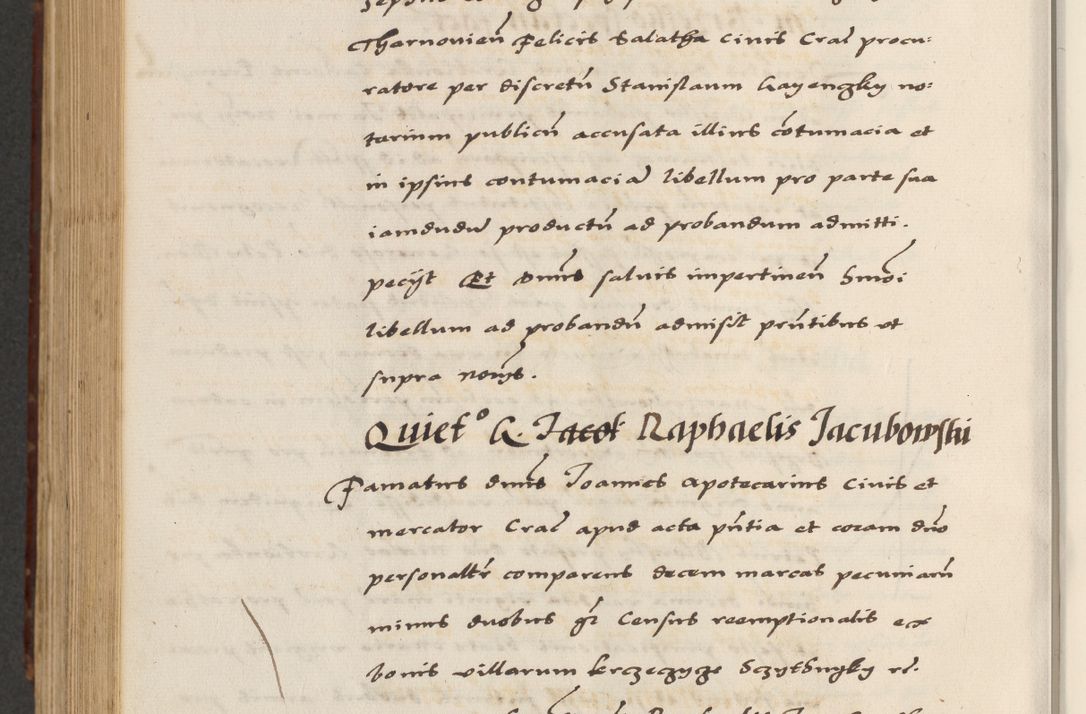 Tharnovien̄ Felicis Salatha civis Crac̄ procu:
ratore per discretū Stanislaum Gayengky no:
tarium publicū accusata illius cōtumacia et
in ipsius contumaciā libellum pro parte sua
iamdudū productū ad probandum admitti.
peciit Et Dn̄us salvis impertinen̄
libellum ad probandū admisit pn̄tibus ut
supra
Quiet° G. Raphaelis Jacubowski
Famatus dn̄us Joannes Apotecarius Civis et
mercator Crac̄ apud acta pn̄tia et coram dn̄o
personalr̄ comparens decem marcas pecuniarū
minus duobus gr̄ census reemptionalis ex
bonis villarum